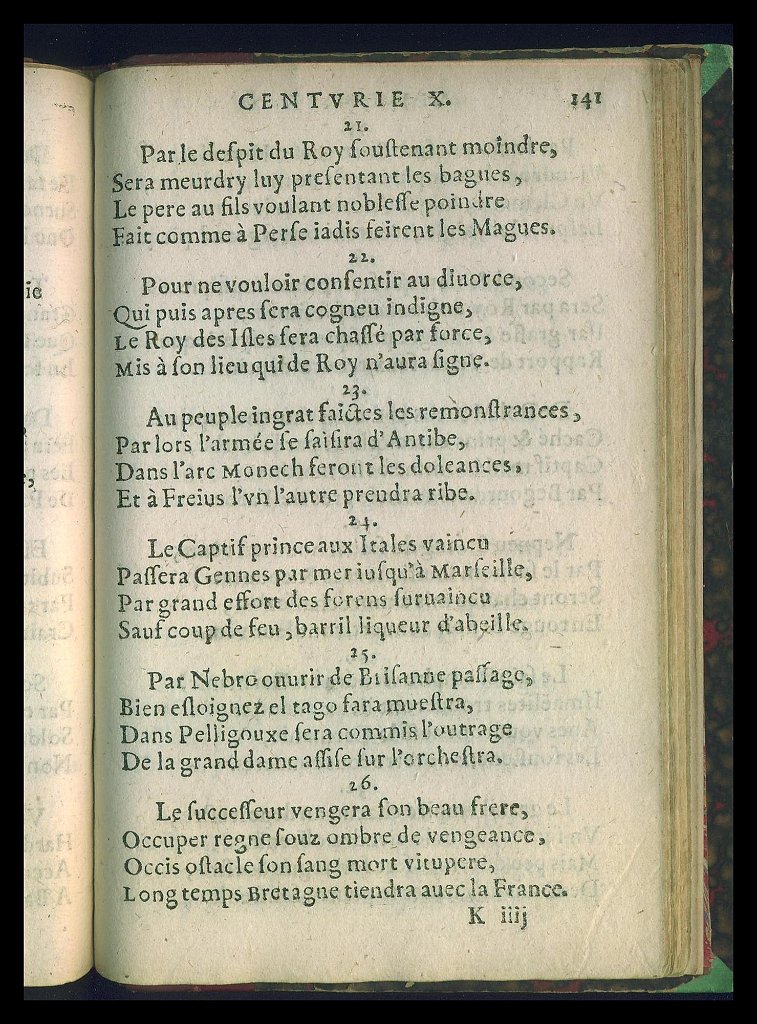 CENTVRIE X. 141
21.
Par le deſpit du Roy ſouſtenant moindre,
Sera meurdry luy preſentant les bagues,
Le pere au fils voulant nobleſſe poindre
Fait comme à Perſe iadis feirent les Magues.
22.
Pour ne vouloir conſentir au diuorce,
Qui puis apres ſera cogneu indigne,
Le Roy des Iſles ſera chaſſé par force,
Mis à ſon lieu qui de Roy n'aura ſigne.
23.
Au peuple ingrat faictes les remonſtrances,
Par lors l'armée ſe ſaiſira d'Antibe,
Dans l'arc Monech feront les doleances,
Et à Freius l'vn l'autre prendra ribe.
24.
Le Captif prince aux Itales vaincu
Paſſera Gennes par mer iuſqu'à Marſeille,
Par grand effort des forens ſuruaincu
Sauf coup de feu, barril liqueur d'abeille.
25.
Par Nebro ouurir de Briſanne paſſage,
Bien eſloignez el tago fara mueſtra,
Dans Pelligouxe ſera commis l'outrage
De la grand dame aſſiſe ſur l'orcheſtra.
26.
Le ſucceſſeur vengera ſon beau frere,
Occuper regne ſouz ombre de vengeance,
Occis oſtacle ſon ſang mort vitupere,
Long temps Bretagne tiendra auec la France.
K iiij